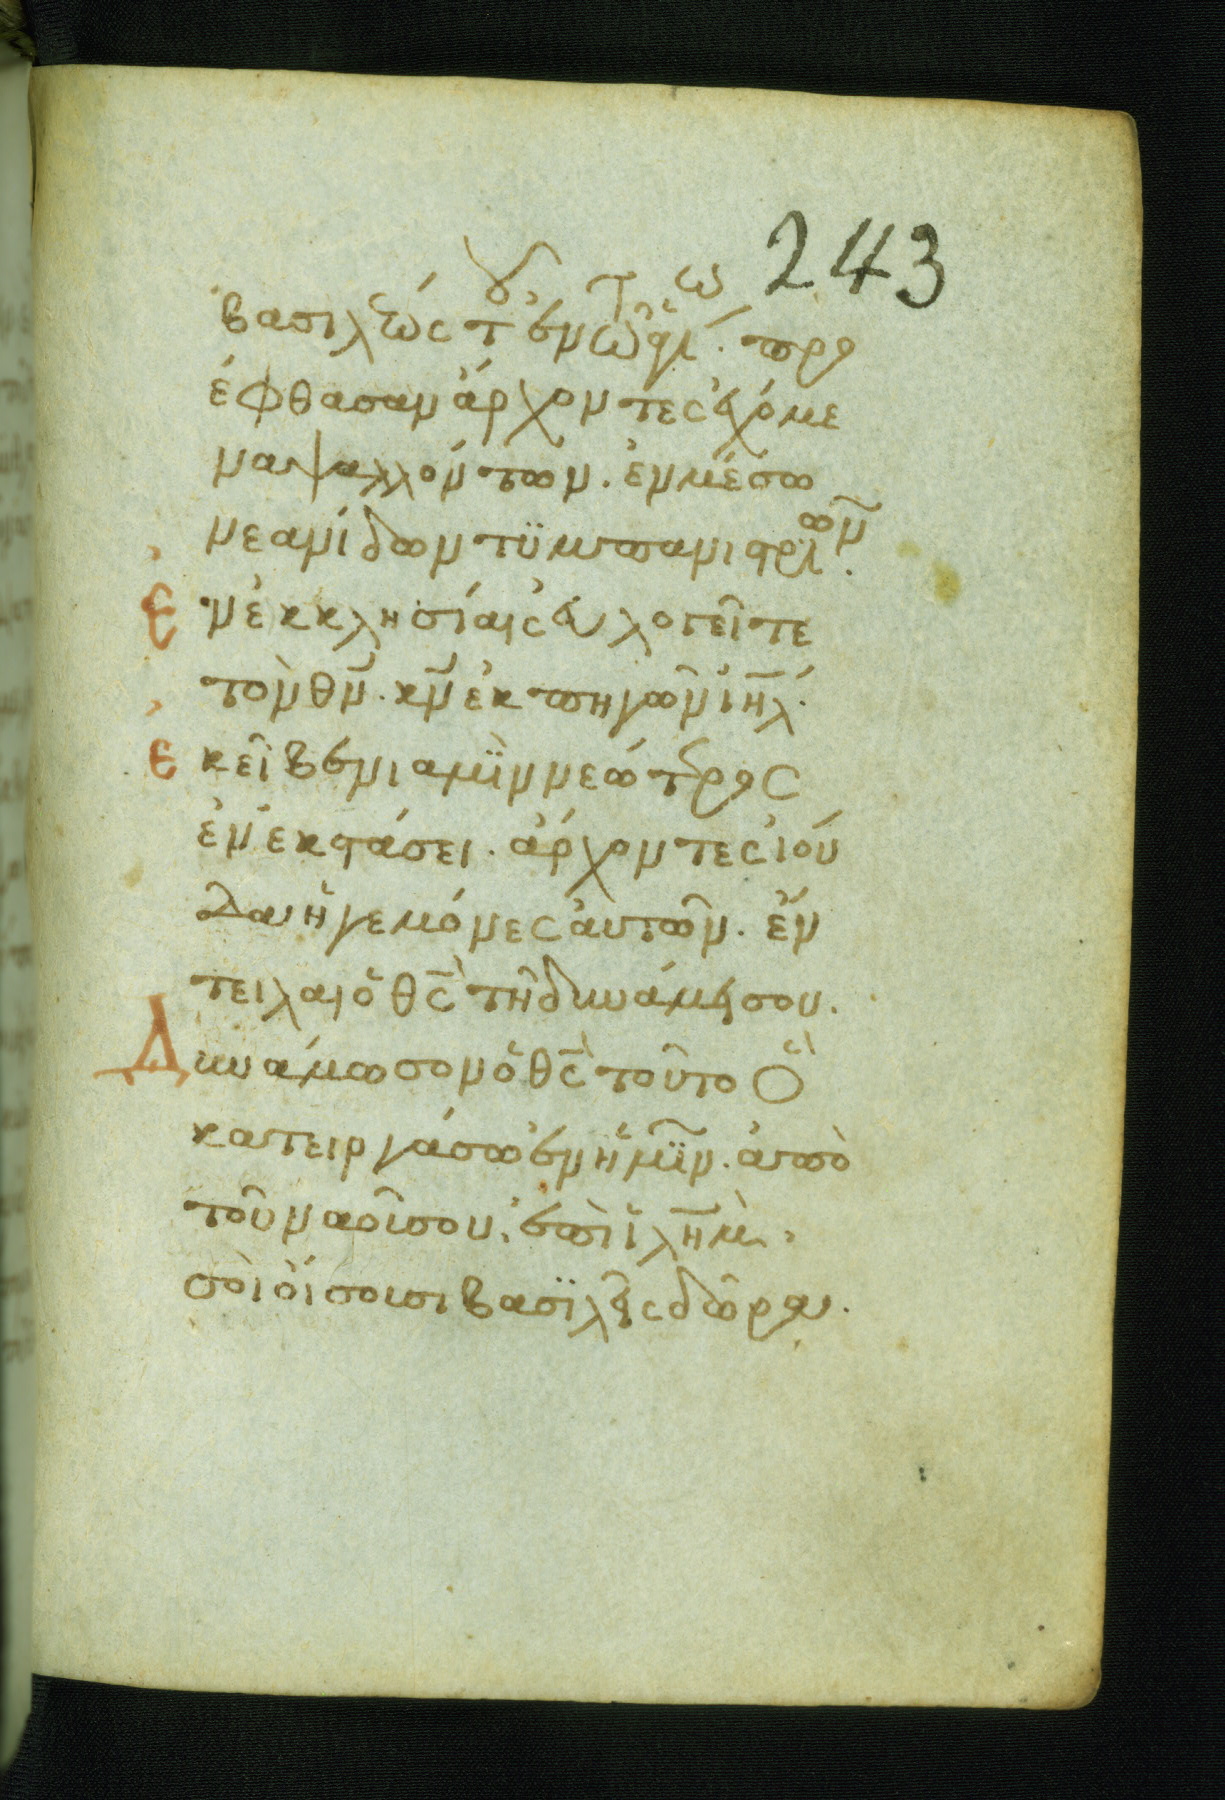 243
βασιλέως τοῦ ἐν τῷ ἁγίῳ. προ
έφθασαν ἄρχοντες ἐχόμε
να ψαλλόντων. ἐν μέσω
νεανίδων τϋμπανιστριῶν.
Ἐν ἐκκλησίαις εὐλογεῖτε
τὸν θν̄. κν̄ ἐκ πηγῶν ἰη̄λ.
Ἐκεῖ βενιαμϊν νεώτερος
ἐν ἐκστάσει. ἄρχοντες ἰού
δα ἡγεμόνες ἀυτῶν. ἔν
τειλαι ὁ θς̄ τῆ δυνάμει σου.
Δυνάμωσον ὁ θς̄ τοῦτο ὃ
κατειργάσω ἐν ἡμῖν. ἀπὸ
τοῦ ναοῦ σου ἐπὶ ἰλη̄μ.
σοὶ οἴσουσι βασϊλεῖς δῶρα.